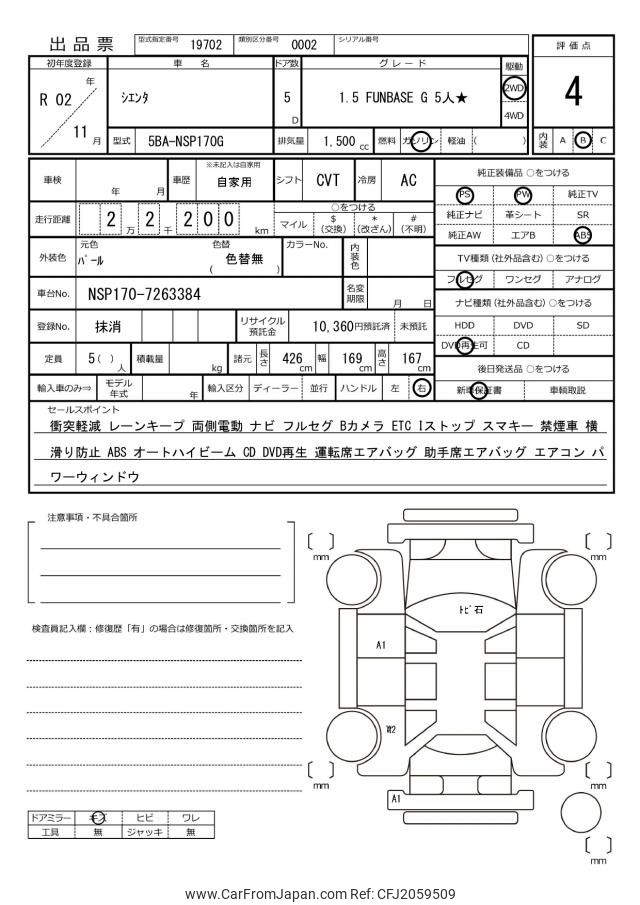 出品票 型式指定番号 19702 類別区分番号 0002 シリアル番号
評価点
初年度登録 車名 ドア数 グレード 駆動
R 02 年 11 月
シエンタ
5 D
1.5 FUNBASE G 5人★
2WD
4WD
4
型式 5BA-NSP170G 排気量 1,500 cc 燃料 ガソリン 軽油 ( )
内装 A B C
車検 年 月 車歴 ※未記入は自家用 自家用 シフト CVT 冷房 AC
純正装備品 ○をつける
PS PW 純正TV
純正ナビ 革シート SR
純正AW エアB ABS
走行距離 2万2千200 km
○をつける
マイル $(交換) *(改ざん) #(不明)
外装色 元色 パール 色替 ( 色替無 ) カラーNo. 内装色
TV種類(社外品含む)○をつける
フルセグ ワンセグ アナログ
車台No. NSP170-7263384 名変期限 月 日
ナビ種類(社外品含む)○をつける
HDD DVD SD
DVD再生可 CD
登録No. 抹消 リサイクル預託金 10,360円預託済 未預託
定員 5( )人 積載量 kg 諸元 長さ 426 cm 幅 169 cm 高さ 167 cm
後日発送品 ○をつける
新車保証書 車輌取説
輸入車のみ⇒ モデル年式 年 輸入区分 ディーラー 並行 ハンドル 左 右
セールスポイント
衝突軽減 レーンキープ 両側電動 ナビ フルセグ Bカメラ ETC Iストップ スマキー 禁煙車 横
滑り防止 ABS オートハイビーム CD DVD再生 運転席エアバッグ 助手席エアバッグ エアコン パ
ワーウィンドウ
注意事項・不具合箇所
検査員記入欄:修復歴「有」の場合は修復箇所・交換箇所を記入
mm
mm
トビ石
A1
mm
mm
A1
mm
ドアミラー キズ ヒビ ワレ
工具 無 ジャッキ 無
www.CarFromJapan.com Ref: CFJ2059509